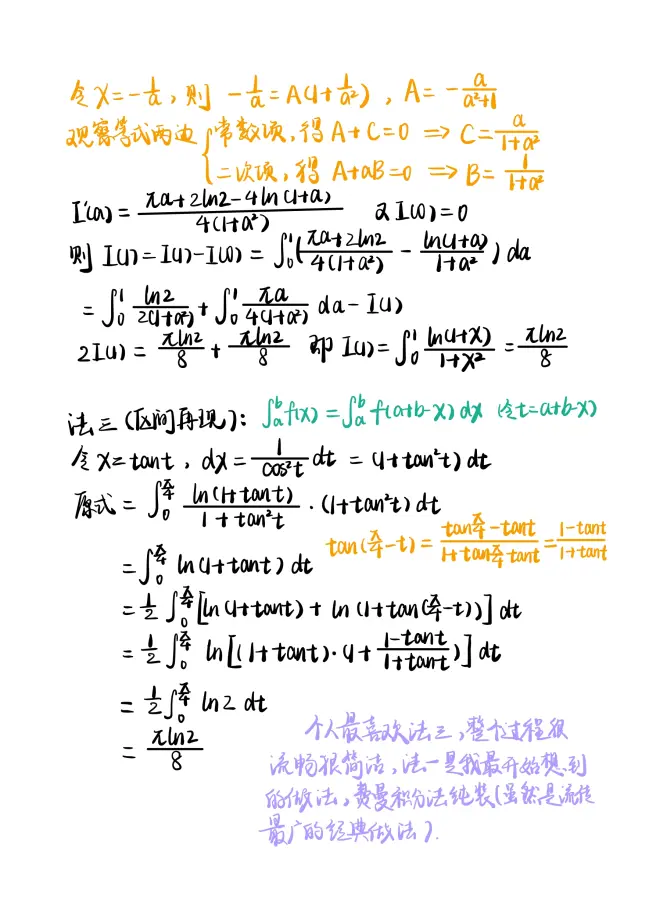 令x=-1/a, 则 -1/a=A(1+1/a²), A=-a/(a²+1)
观察等式两边{常数项,得 A+C=0 ⇒ C=a/(1+a²)
二次项,得 A+aB=0 ⇒ B=1/(1+a²)
I'(a)=(πa+2ln2-4ln(1+a))/(4(1+a²)) 又I(0)=0
则 I(1)=I(1)-I(0)=∫₀¹((πa+2ln2)/(4(1+a²))-ln(1+a)/(1+a²))da
=∫₀¹ ln2/(2(1+a²))+∫₀¹ πa/(4(1+a²)) da-I(1)
2I(1)=πln2/8+πln2/8 即 I(1)=∫₀¹ ln(1+x)/(1+x²)=πln2/8
法三(区间再现): ∫ₐᵇf(x)=∫ₐᵇf(a+b-x)dx (令t=a+b-x)
令x=tant, dx=1/cos²t dt=(1+tan²t)dt
原式=∫₀^(π/4) ln(1+tant)/(1+tan²t)·(1+tan²t)dt
tan(π/4-t)=(tanπ/4-tant)/(1+tanπ/4tant)=(1-tant)/(1+tant)
=∫₀^(π/4) ln(1+tant)dt
=1/2∫₀^(π/4)[ln(1+tant)+ln(1+tan(π/4-t))]dt
=1/2∫₀^(π/4) ln[(1+tant)·(1+(1-tant)/(1+tant))]dt
=1/2∫₀^(π/4) ln2 dt
=πln2/8
个人最喜欢法三,整个过程很
流畅很简洁,法一是我最开始想到
的做法,费曼积分法纯装(虽然是流传
最广的经典做法).